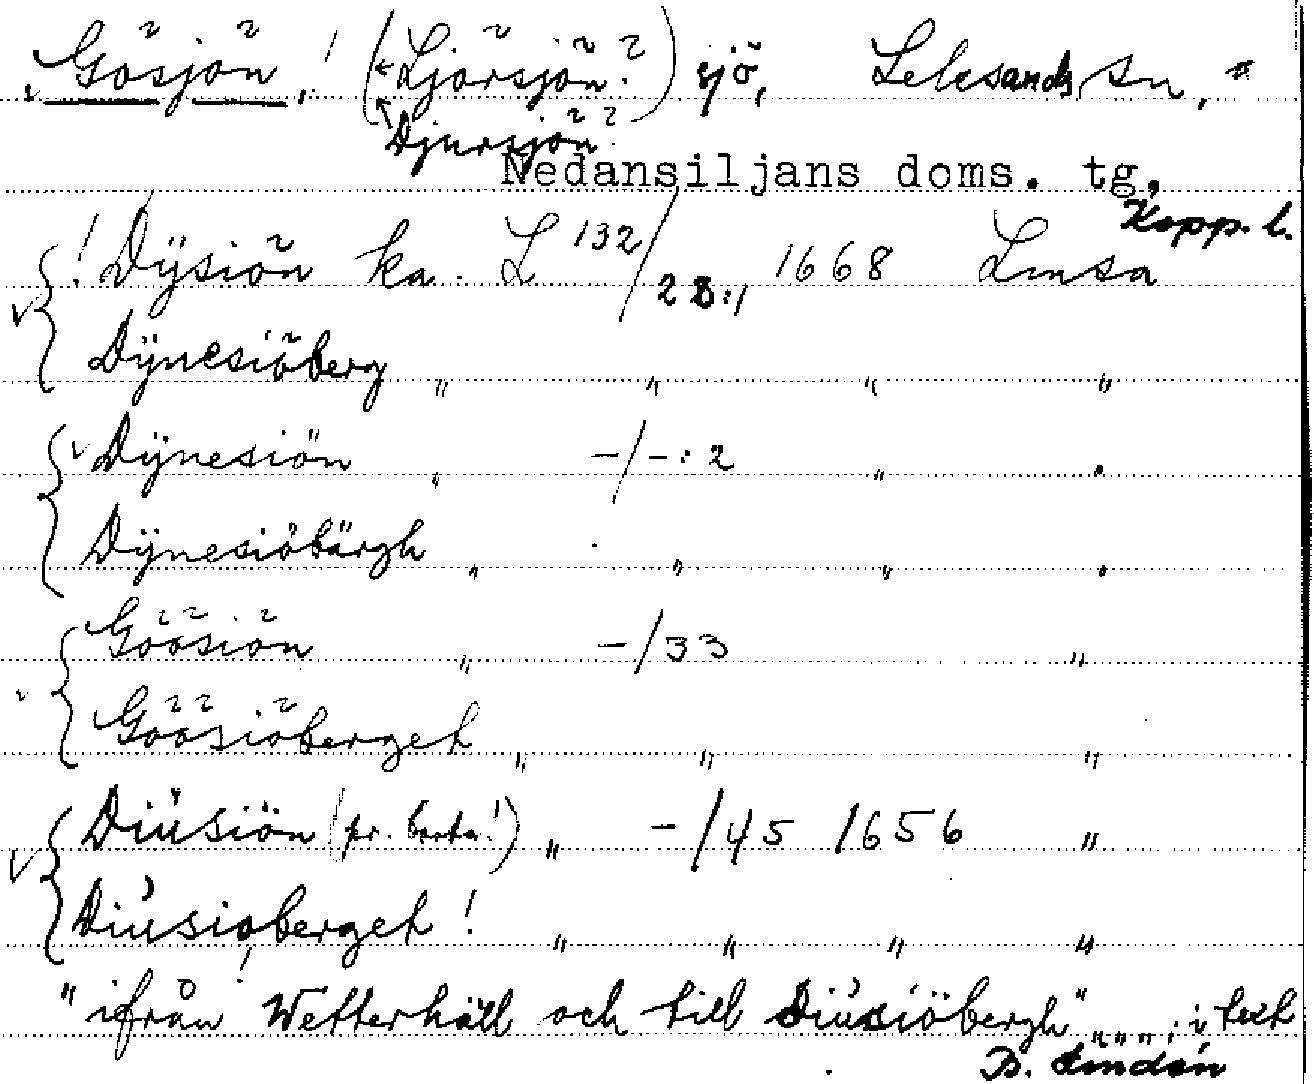 Gösjön! (Ljörsjön?) sjö, Leksands sn,
Djursjön?
Nedansiljans doms. tg.
Kopp. l.
! Dÿsiön ka. L 132/28:1 1668 Lmsa
Dÿnesiöberg " " " "
Dÿnesiön " -/-:2 " "
Dÿnesiöbärgh " " " "
Göösiön " -/33 "
Göösiöberget " " "
Diusiön (pr. borta!) " -/45 1656 "
Diusioberget! " " " "
" ifrån Wetterhäll och till Diusiöbergh" """ i text
B. Lindén